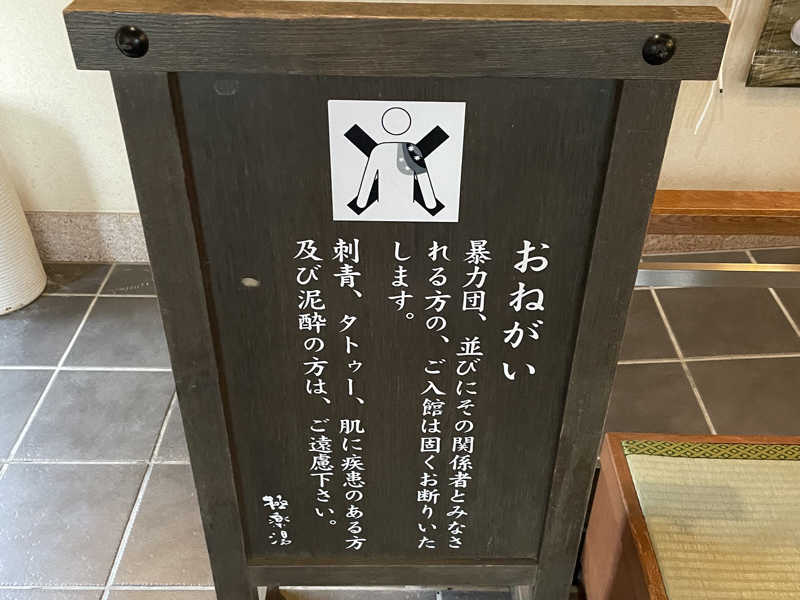 おねがい
暴力団、並びにその関係者とみなさ
れる方の、ご入館は固くお断りいた
します。
刺青、タトゥー、肌に疾患のある方
及び泥酔の方は、ご遠慮下さい。
極楽湯